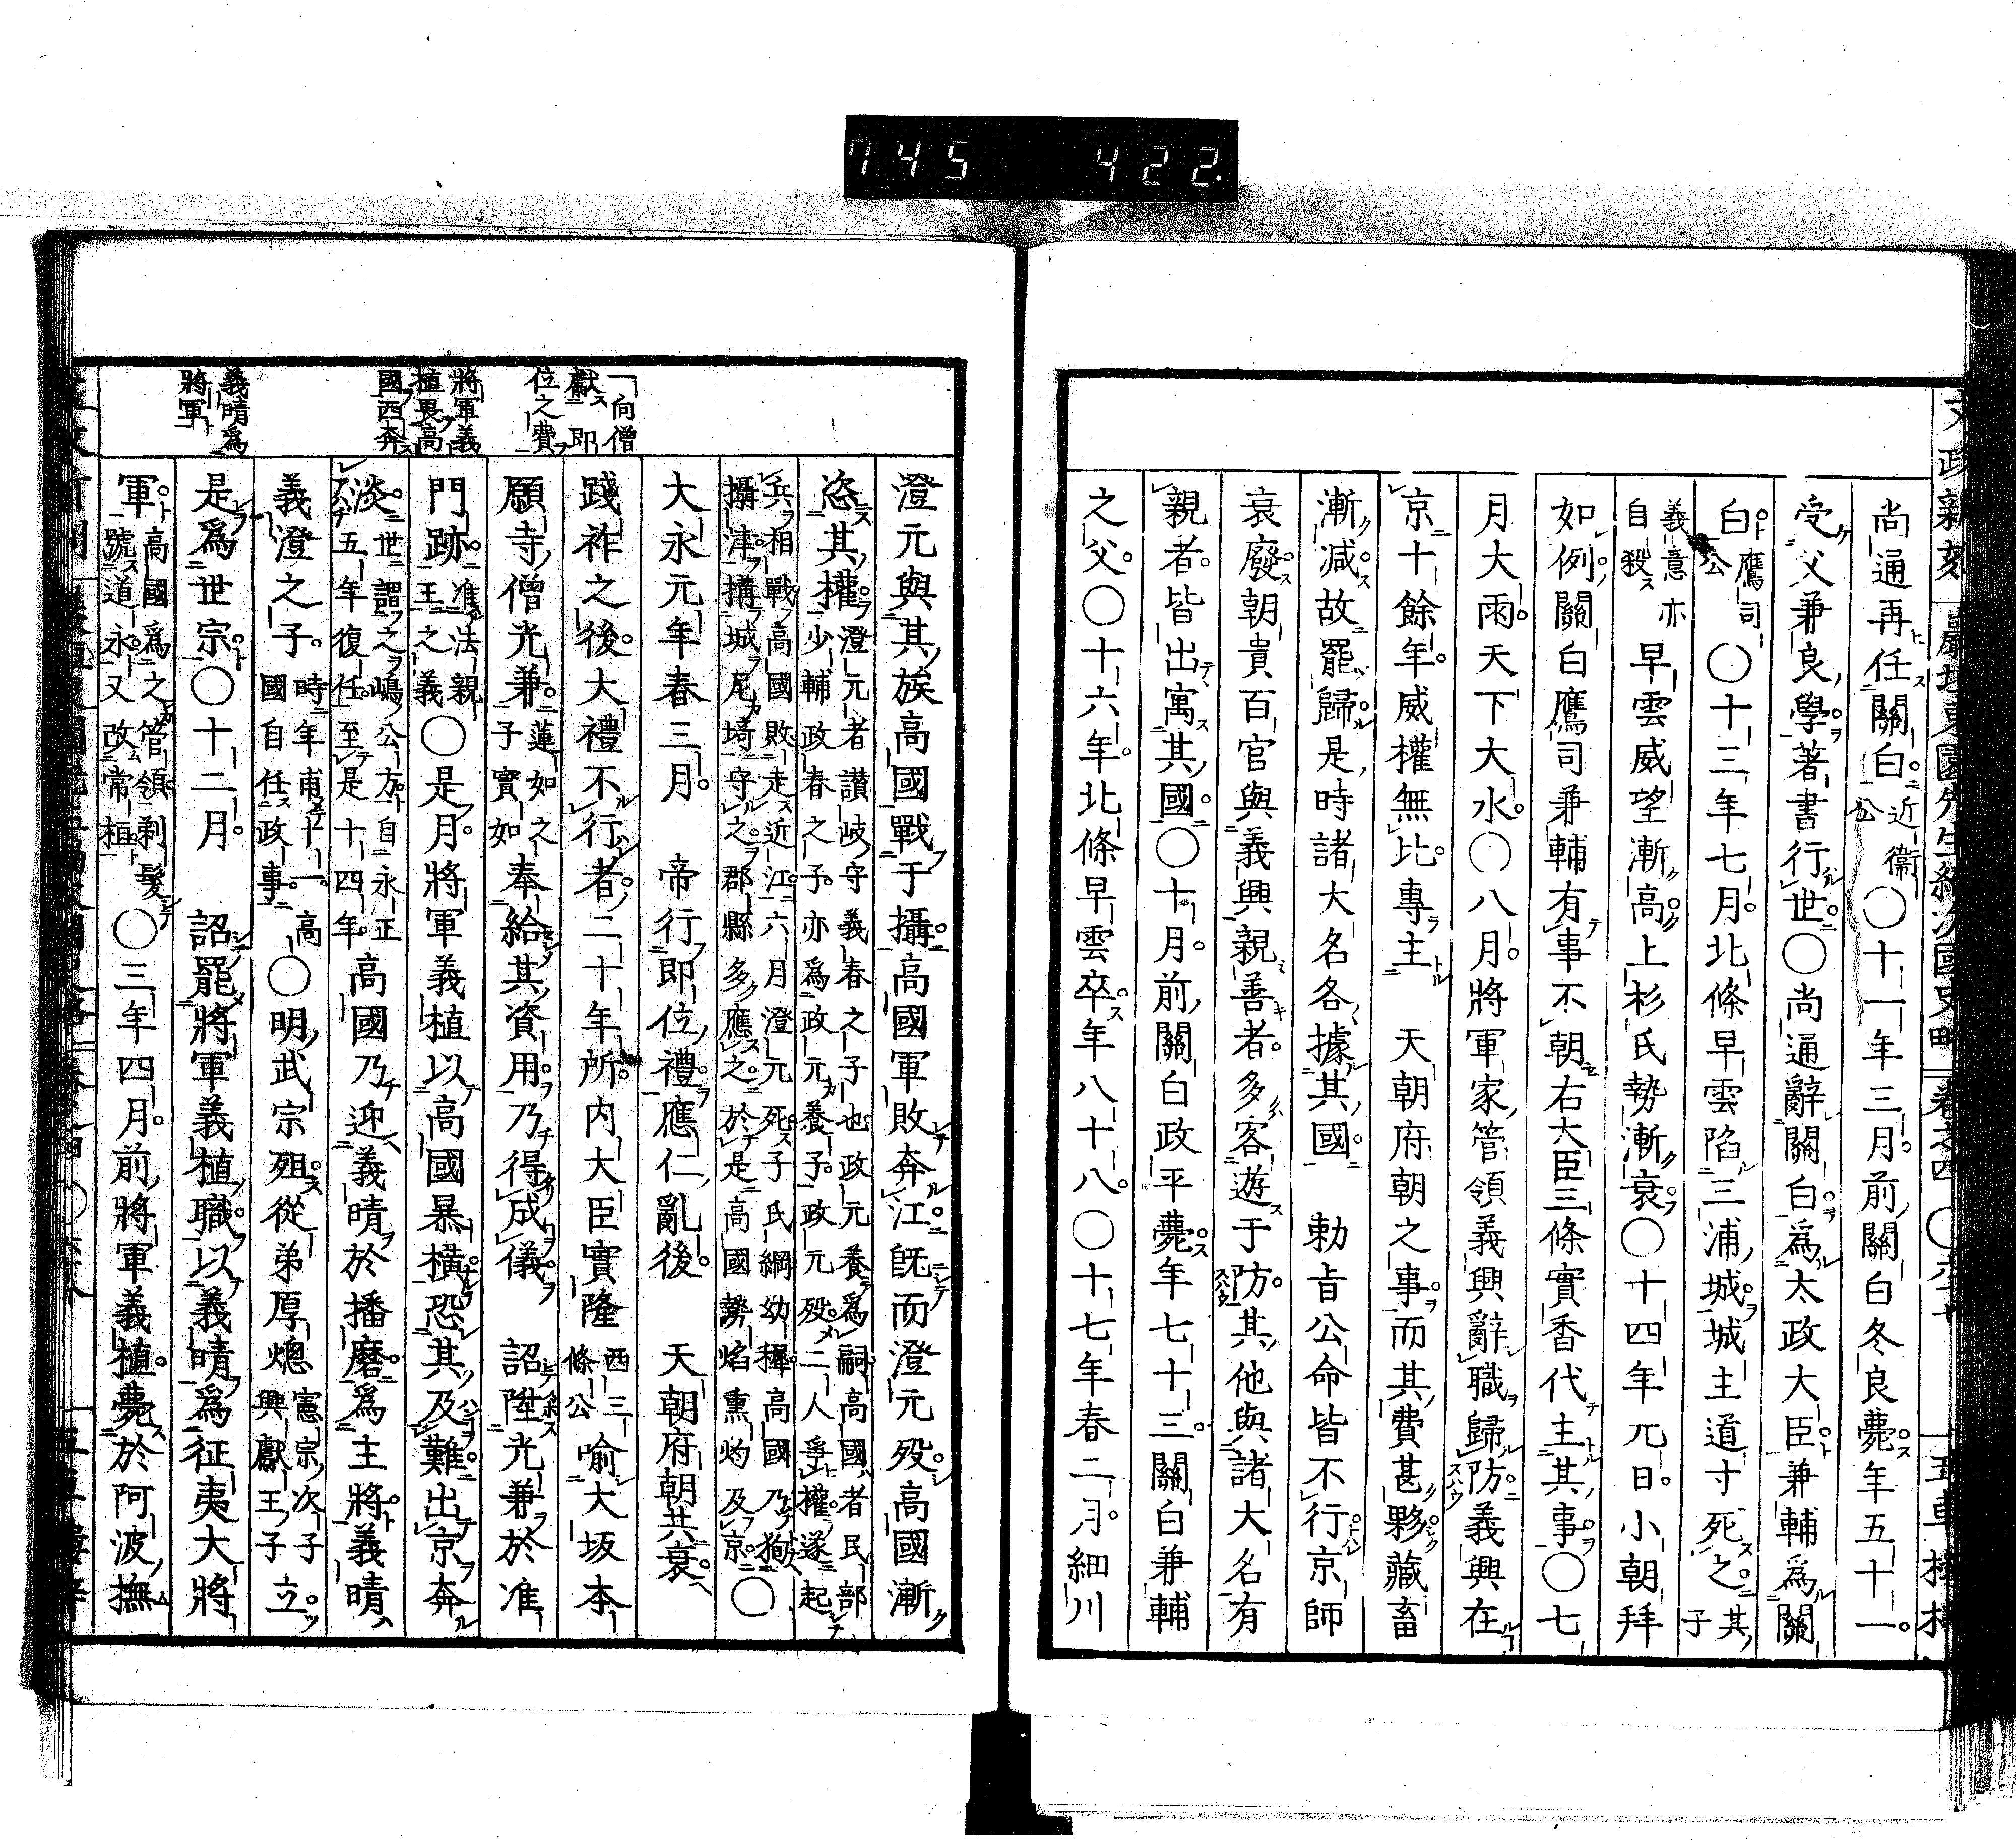 745 422.
尚通再任關白近衞公○十一年三月前關白冬良薨年五十一
受父兼良學著書行世○尚通辭關白爲太政大臣兼輔爲關
白鷹司公○十三年七月北條早雲陷三浦城城主道寸死之其子
義意亦自殺早雲威望漸高上杉氏勢漸衰○十四年元日小朝拜
如例關白鷹司兼輔有事不朝右大臣三條實香代主其事○七
月大雨天下大水○八月將軍家管領義興辭職歸防義興在
京十餘年威權無比專主 天朝府朝之事而其費甚夥藏畜
漸減故罷歸是時諸大名各據其國 勅旨公命皆不行京師
衰廢朝貴百官與義興親善者多客遊于防其他與諸大名有
親者皆出寓其國○十月前關白政平薨年七十三關白兼輔
之父○十六年北條早雲卒年八十八○十七年春二月細川
澄元與其族高國戰于攝高國軍敗奔江既而澄元歿高國漸
恣其權澄元者讃岐守義春之子也政元養爲嗣高國者民部少輔政春之子亦爲政元養子政元歿二人爭權遂起
兵相戰高國敗走近江六月澄元死子氏綱幼穉高國乃狥攝津搆城尼埼守之郡縣多應之於是高國勢焰熏灼及京○
大永元年春三月 帝行即位禮應仁亂後 天朝府朝共衰
踐祚之後大禮不行者二十年所内大臣實隆西三條公喻大坂本
願寺僧光兼蓮如之子實如奉給其資用乃得成儀 詔陞光兼於准
門跡准法親王之義○是月將軍義植以高國暴橫恐其及難出京奔
淡世謂之嶋公方自永正五年復任至是十四年高國乃迎義晴於播磨爲主將義晴
義澄之子時年甫十一高國自任政事○明武宗殂從弟厚熜憲宗次子興獻王子立
是爲世宗○十二月 詔罷將軍義植職以義晴爲征夷大將
軍高國爲之管領剃髮號道永又改常桓○三年四月前將軍義植薨於阿波撫
一向僧獻即位之費
將軍義植畏高國西奔
義晴爲將軍